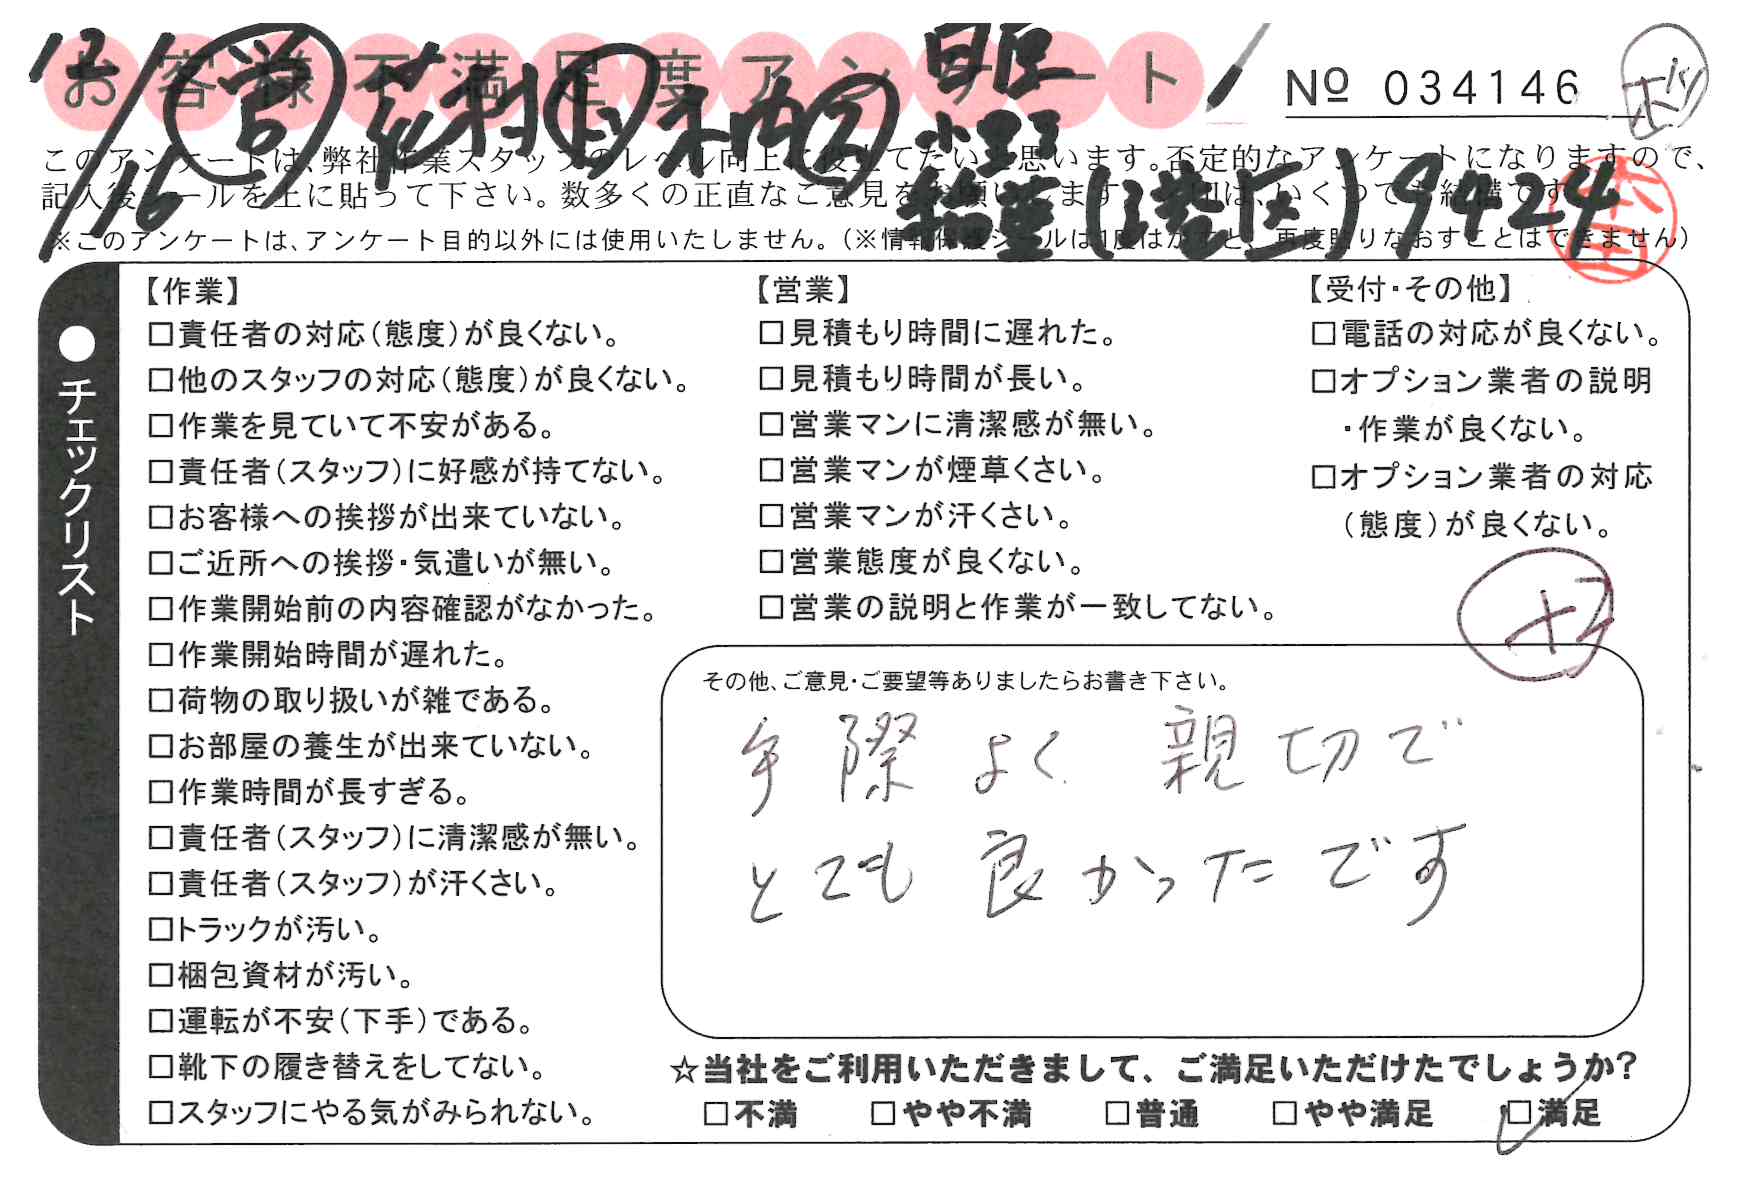 お客様不満足度アンケート
№ 034146
12/16
このアンケートは、弊社作業スタッフのレベル向上に役立てたいと思います。否定的なアンケートになりますので、
記入後シールを上に貼って下さい。数多くの正直なご意見をお願いします。
(港区) 9424
※このアンケートは、アンケート目的以外には使用いたしません。(※情報保護シールは1度はがすと、再度貼りなおすことはできません)
●チェックリスト
【作業】
□責任者の対応(態度)が良くない。
□他のスタッフの対応(態度)が良くない。
□作業を見ていて不安がある。
□責任者(スタッフ)に好感が持てない。
□お客様への挨拶が出来ていない。
□ご近所への挨拶・気遣いが無い。
□作業開始前の内容確認がなかった。
□作業開始時間が遅れた。
□荷物の取り扱いが雑である。
□お部屋の養生が出来ていない。
□作業時間が長すぎる。
□責任者(スタッフ)に清潔感が無い。
□責任者(スタッフ)が汗くさい。
□トラックが汚い。
□梱包資材が汚い。
□運転が不安(下手)である。
□靴下の履き替えをしてない。
□スタッフにやる気がみられない。
【営業】
□見積もり時間に遅れた。
□見積もり時間が長い。
□営業マンに清潔感が無い。
□営業マンが煙草くさい。
□営業マンが汗くさい。
□営業態度が良くない。
□営業の説明と作業が一致してない。
【受付・その他】
□電話の対応が良くない。
□オプション業者の説明
・作業が良くない。
□オプション業者の対応
(態度)が良くない。
その他、ご意見・ご要望等ありましたらお書き下さい。
手際よく 親切で
とても良かったです
☆当社をご利用いただきまして、ご満足いただけたでしょうか?
□不満 □やや不満 □普通 □やや満足 □満足